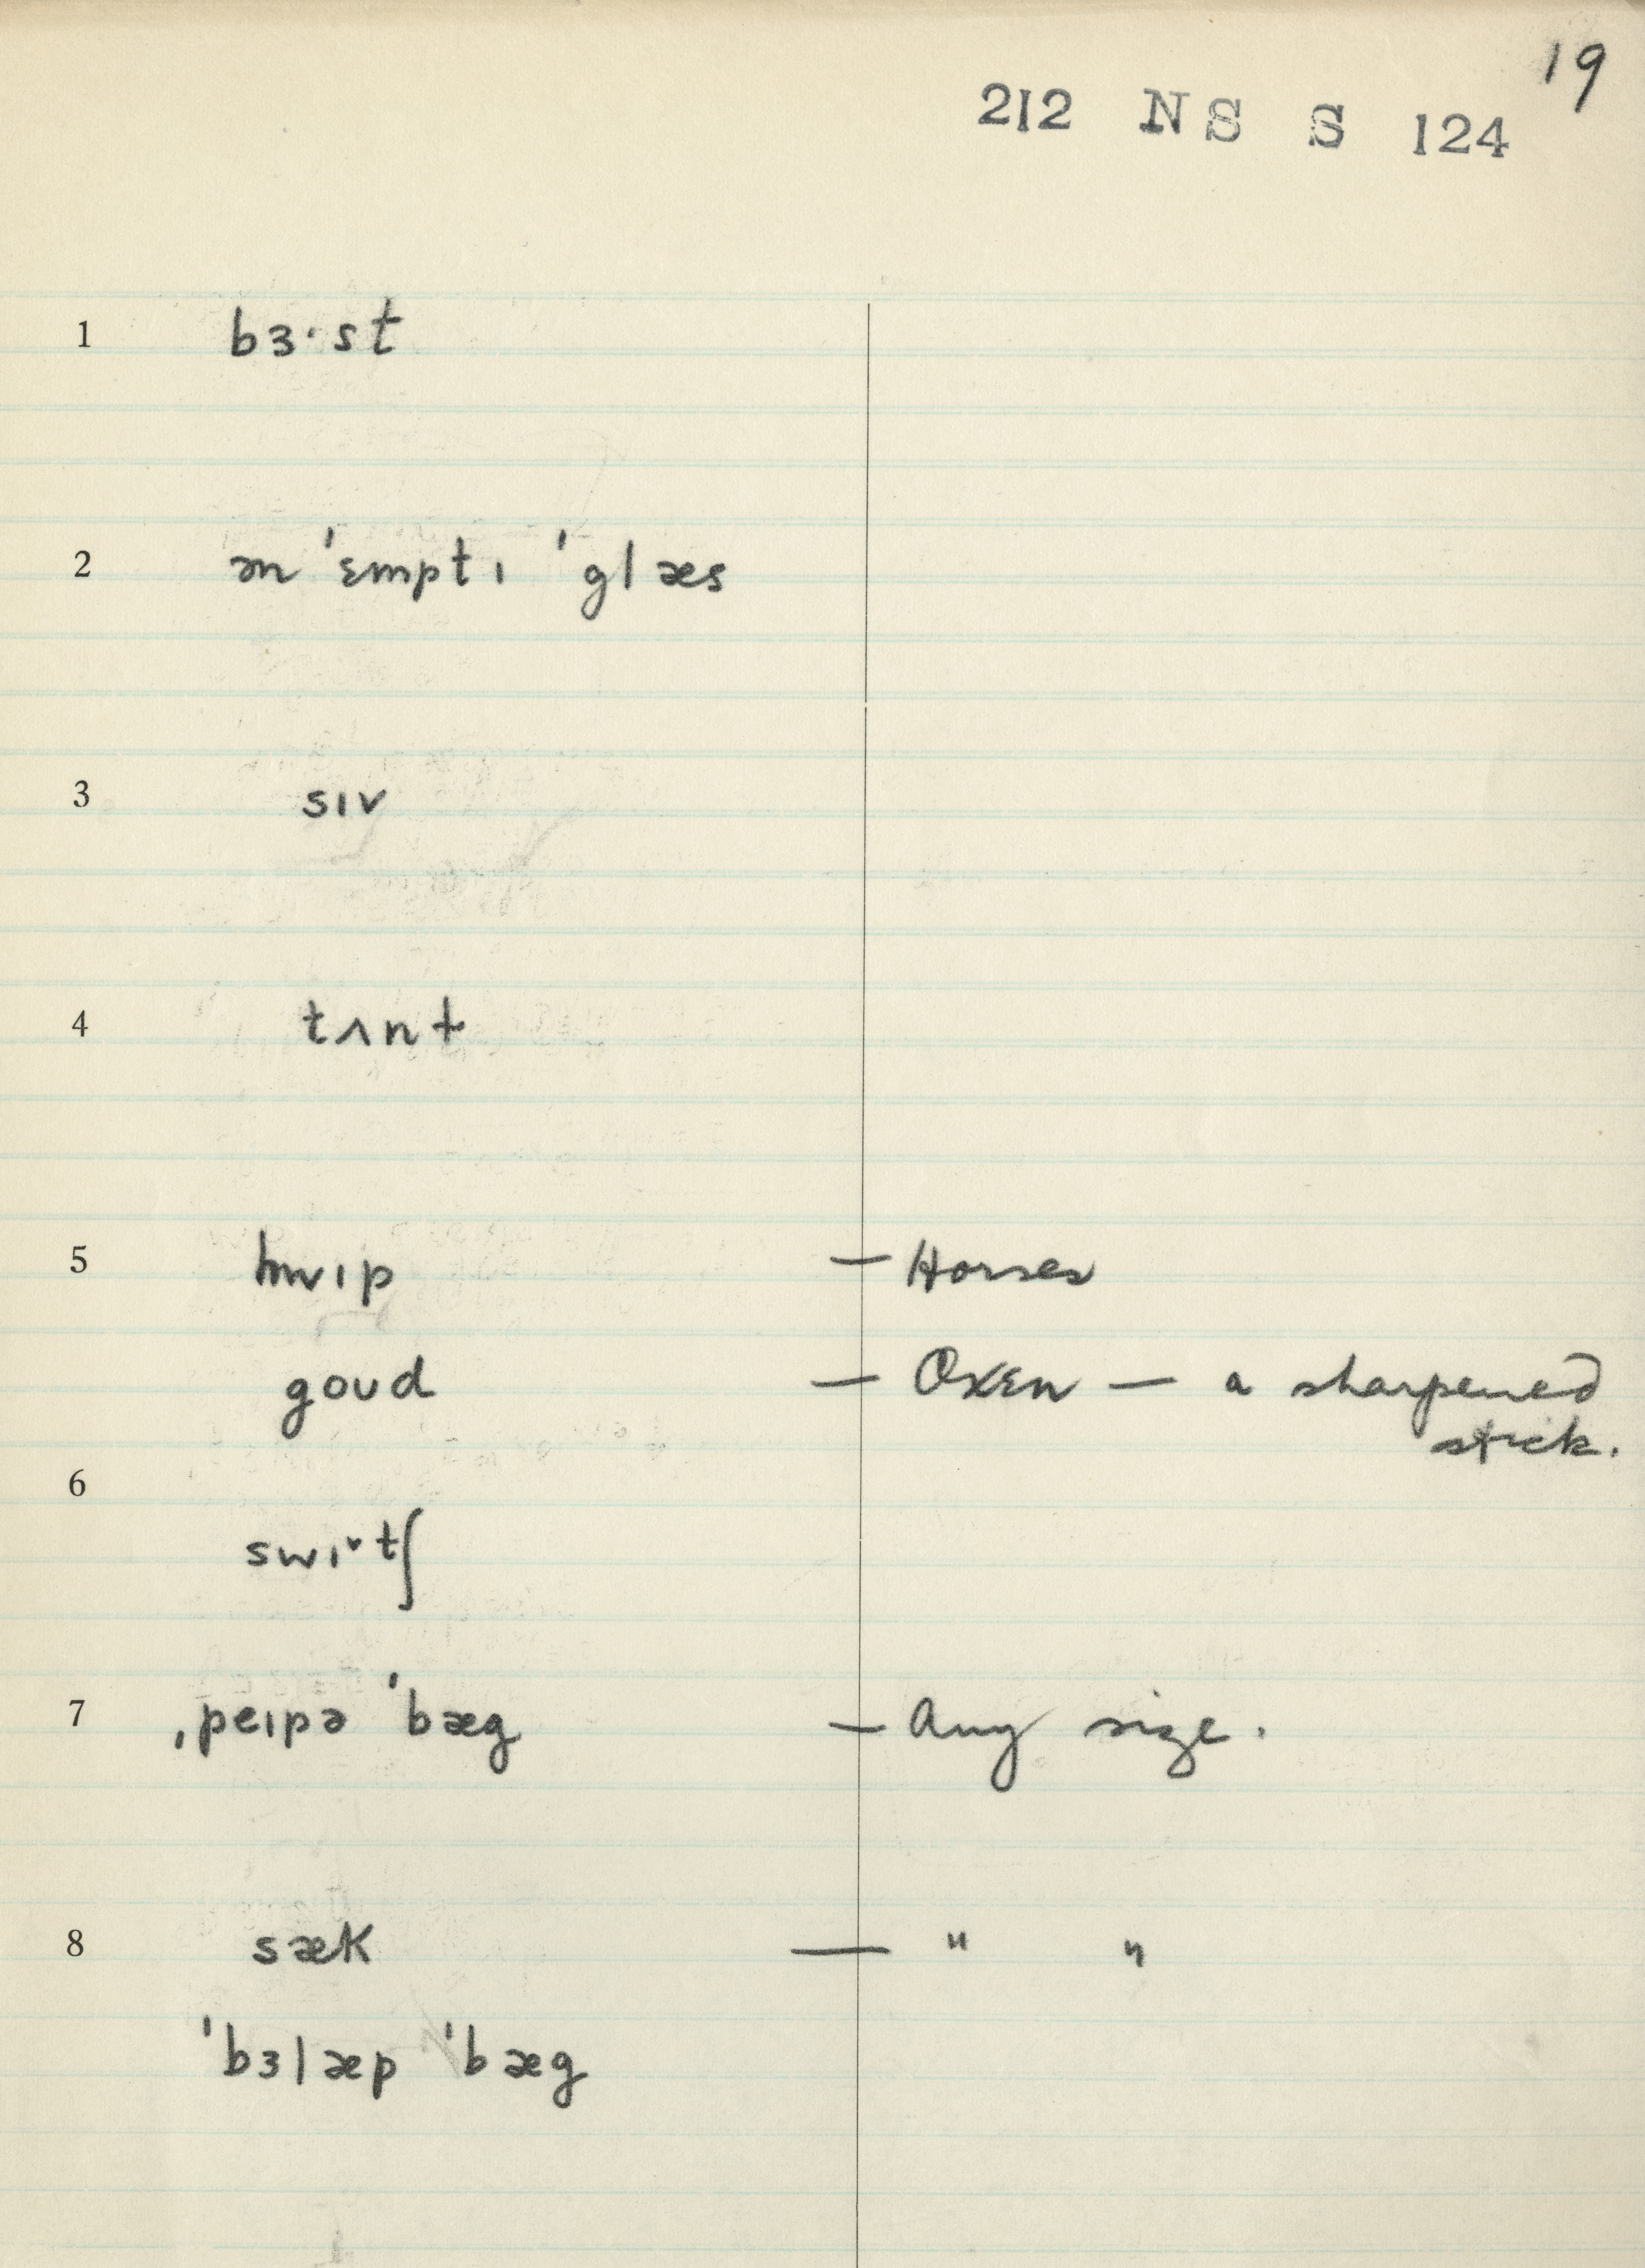 19
212 NS S 124
1 bɜ·st
2 ən ˈɛmptɪ ˈglæs
3 sɪv
4 tʌnt
5 hwɪp — Horses
goʊd — Oxen — a sharpened
stick.
6
swɪ˅tʃ
7 ˌpeɪpə ˈbæg — Any size.
8 sæk — " "
ˈbɜlæp ˈbæg